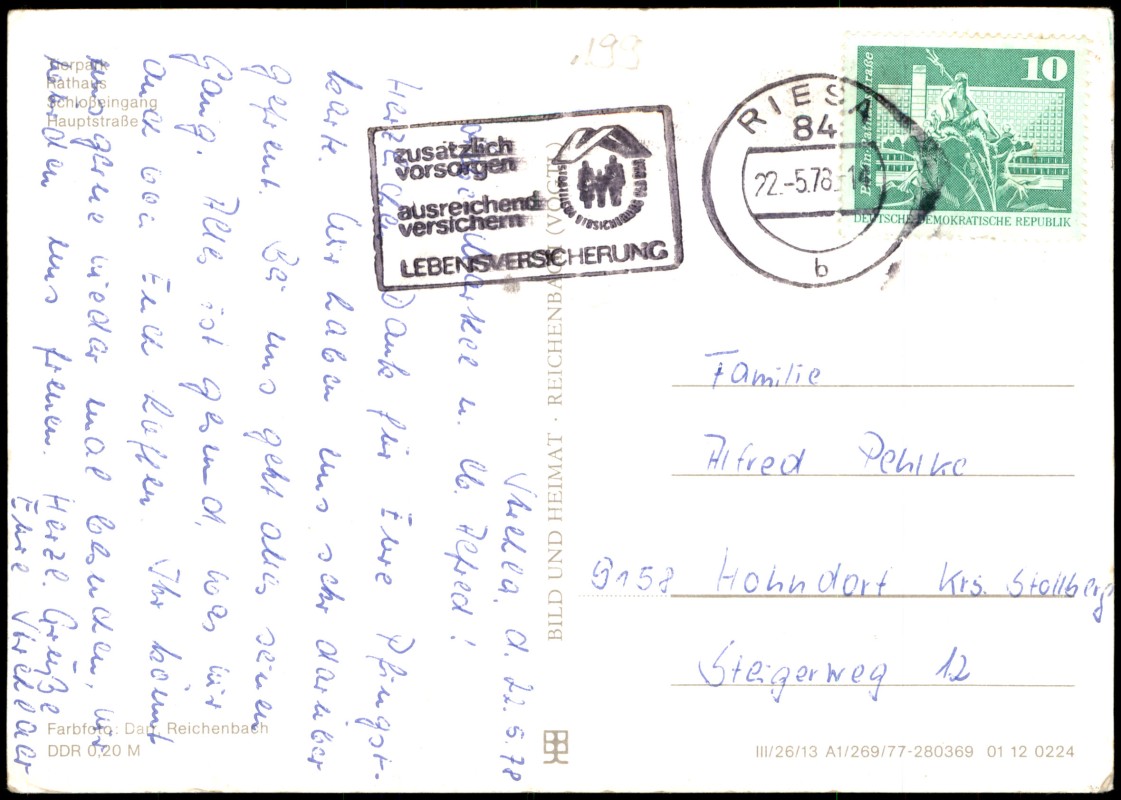 Tierpark
Rathaus
Schloßeingang
Hauptstraße
199
zusätzlich
vorsorgen
ausreichend
versichern
LEBENSVERSICHERUNG
RIESA
84
22.-5.78
b
10
Berlin, Rathausstraße
DEUTSCHE DEMOKRATISCHE REPUBLIK
Strehla, d. 22.5.78
u. lb. Alfred!
Herzliche Dank für Eure Pfingst-
karte. Wir haben uns sehr darüber
gefreut. Bei uns geht alles seinen
Gang. Alles ist gesund, was wir
auch bei Euch hoffen. Ihr könnt
uns gerne wieder mal besuchen, wir
würden uns freuen.
Herzl. Grüße
Eure Strehlaer
BILD UND HEIMAT · REICHENBACH (VOGTL)
Familie
Alfred Pehlke
9158 Hohndorf Krs. Stollberg
Steigerweg 12
Farbfoto: Darr, Reichenbach
DDR 0,20 M
III/26/13 A1/269/77-280369 01 12 0224